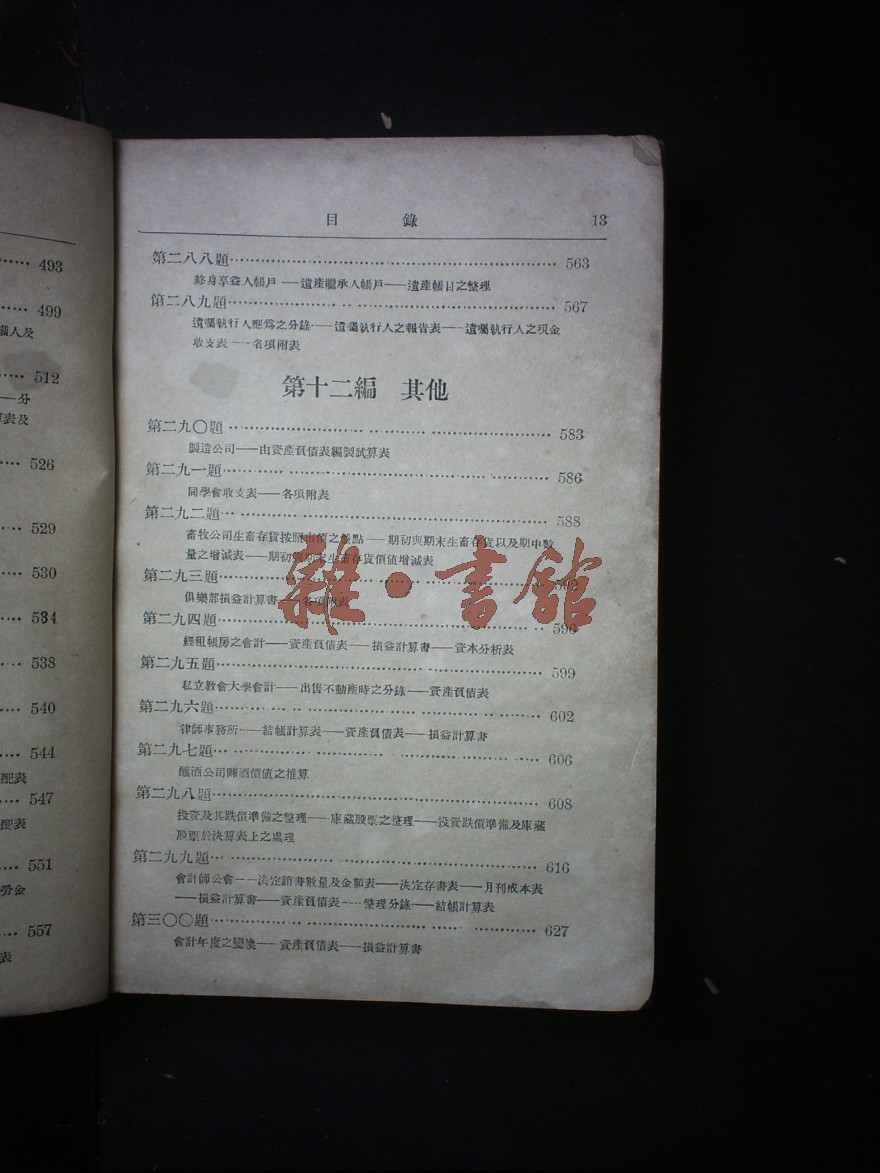 493
499
人及
512
——分
表及
526
529
530
534
538
540
544
配表
547
配表
551
勞金
557
表
目 錄 13
第二八八題 563
終身享益人帳戶——遺產繼承人帳戶——遺產帳目之整理
第二八九題 567
遺囑執行人應爲之分錄——遺囑執行人之報告表——遺囑執行人之現金
收支表——各項附表
第十二編 其他
第二九〇題 583
製造公司——由資產負債表編製試算表
第二九一題 586
同學會收支表——各項附表
第二九二題 588
畜牧公司生畜存貨按照市價之盤點——期初與期末生畜存貨以及期中數
量之增減表——期初與期末生畜存貨價值增減表
第二九三題
俱樂部損益計算書——各項附表
第二九四題 596
經租帳房之會計——資產負債表——損益計算書——資本分析表
第二九五題 599
私立教會大學會計——出售不動產時之分錄——資產負債表
第二九六題 602
律師事務所——結帳計算表——資產負債表——損益計算書
第二九七題 606
釀酒公司陳酒價值之推算
第二九八題 608
投資及其跌價準備之整理——庫藏股票之整理——投資跌價準備及庫藏
股票於決算表上之處理
第二九九題 616
會計師公會——決定銷書數量及金額表——決定存書表——月刊成本表
——損益計算書——資產負債表——整理分錄——結帳計算表
第三〇〇題 627
會計年度之變換——資產負債表——損益計算書
雜·書館